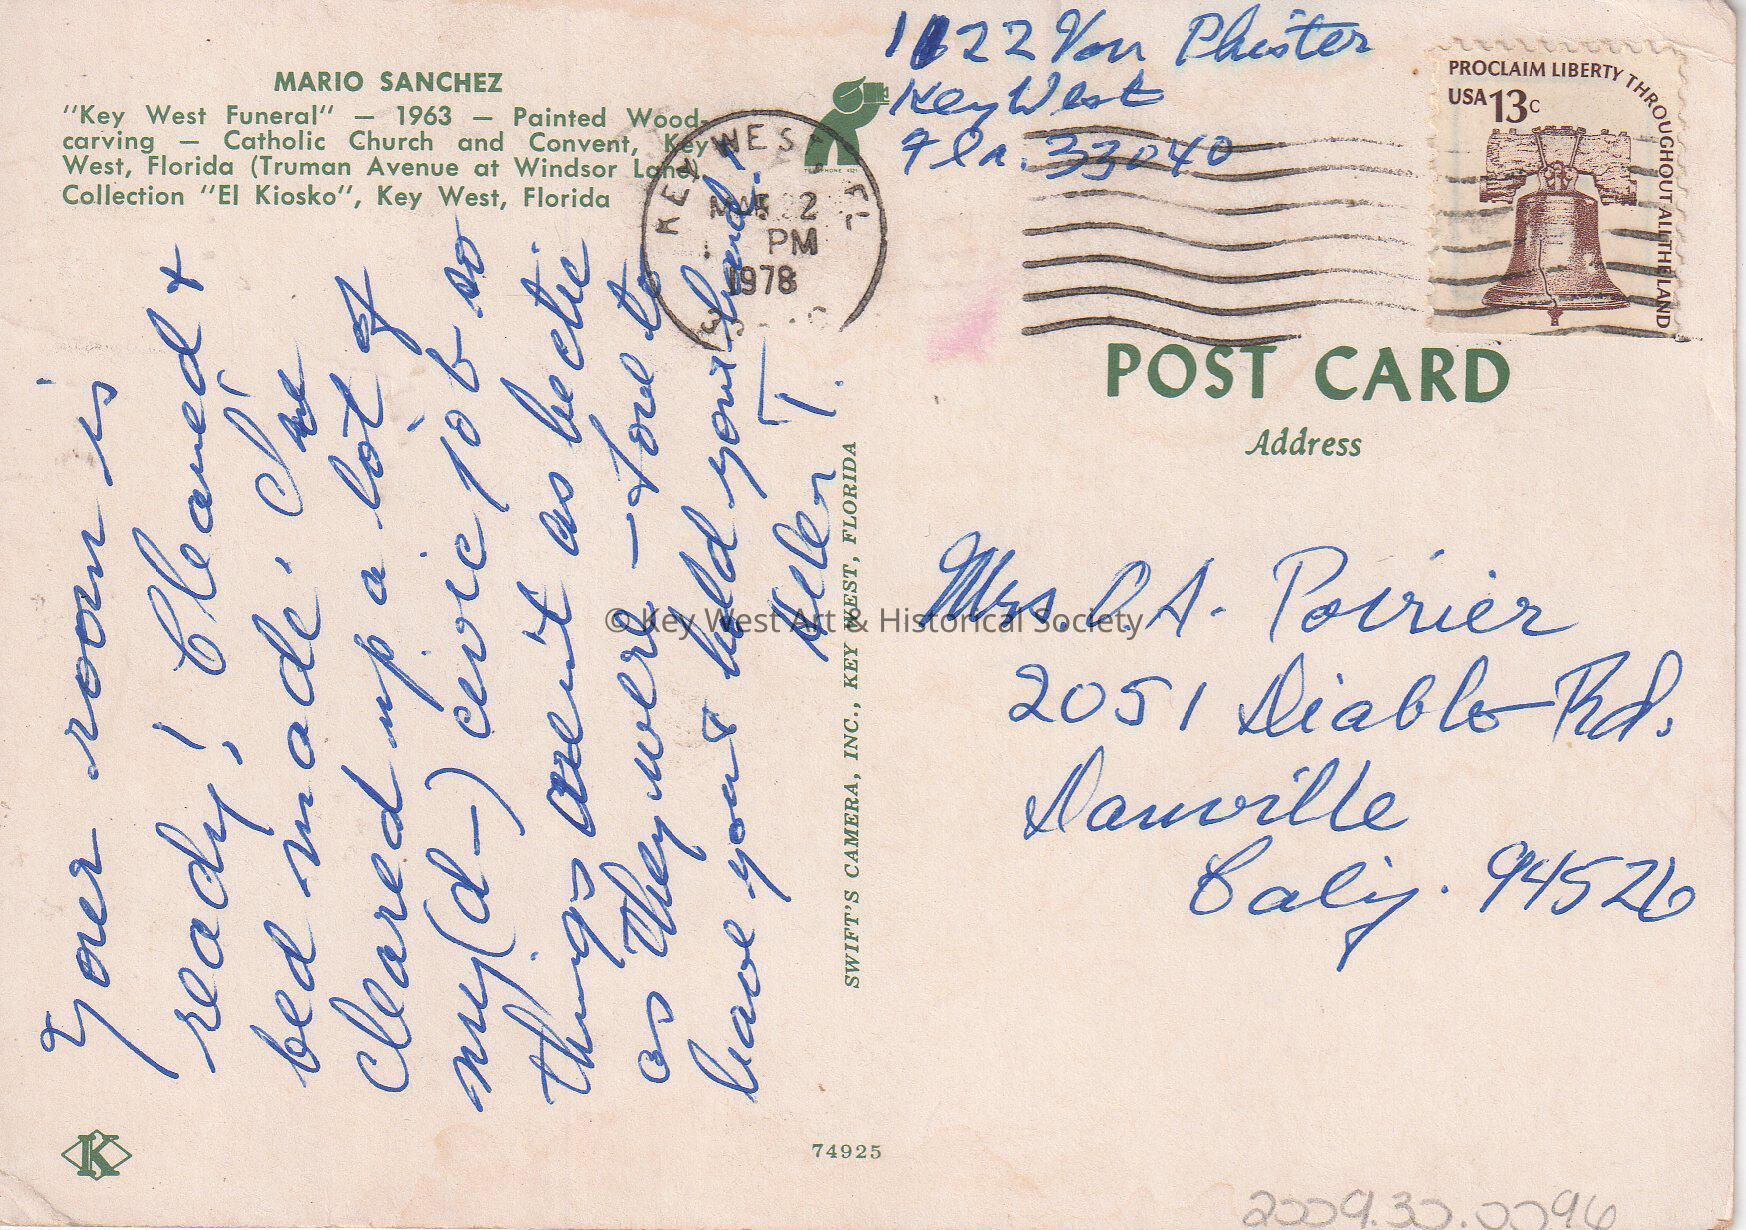 MARIO SANCHEZ
"Key West Funeral" — 1963 — Painted Wood-
carving — Catholic Church and Convent, Key
West, Florida (Truman Avenue at Windsor Lane)
Collection "El Kiosko", Key West, Florida
Your room is
ready! Cleaned &
bed made. I've
cleared up a lot of
my (d—) civic job so
things aren't as hectic
as they were —
have you & hold your hand!
T.
SWIFT'S CAMERA, INC., KEY WEST, FLORIDA
74925
K
1622 Von Phister
Key West
Fla. 33040
KEY WEST, FL
MAR 22
PM
1978
PROCLAIM LIBERTY THROUGHOUT ALL THE LAND
USA 13c
POST CARD
Address
Mrs. C. A. Poirier
2051 Diablo Rd.
Danville
Calif. 94526
© Key West Art & Historical Society
2009.30.0096